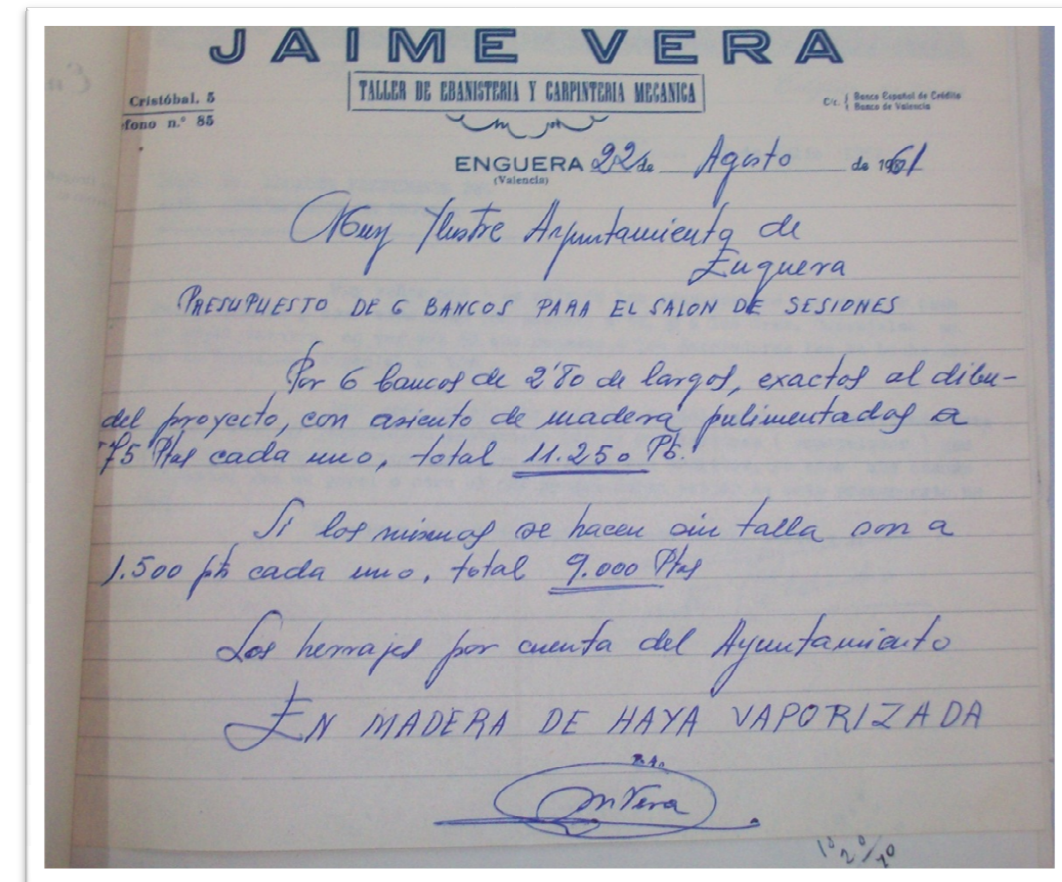 JAIME VERA
TALLER DE EBANISTERIA Y CARPINTERIA MECANICA
Cristóbal, 5
éfono n.° 85
C/c. { Banco Español de Crédito
Banco de Valencia
ENGUERA 22 de Agosto de 1961
(Valencia)
Muy Ilustre Ayuntamiento de
Enguera
PRESUPUESTO DE 6 BANCOS PARA EL SALON DE SESIONES
Por 6 bancos de 2'80 de largos, exactos al dibu-
del proyecto, con asiento de madera pulimentados a
75 Ptas cada uno, total 11.250 Pts.
Si los mismos se hacen sin talla son a
1.500 pts cada uno, total 9.000 Ptas
Los herrajes por cuenta del Ayuntamiento
EN MADERA DE HAYA VAPORIZADA
P.A.
Vera